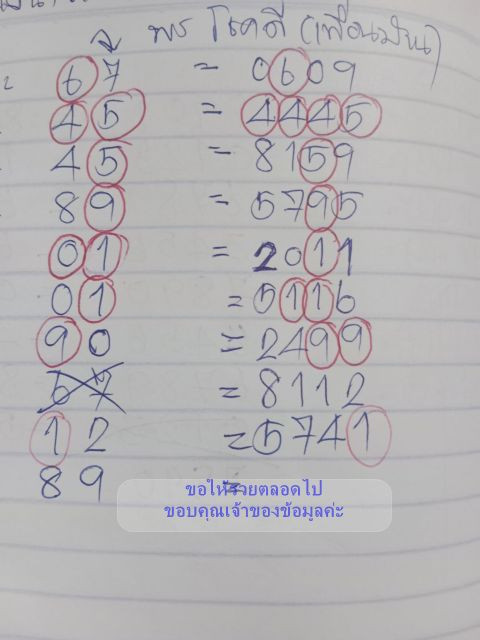 จ พร โชคดี (เพื่อนมั่น)
67 = 0609
45 = 4445
45 = 8159
89 = 5795
01 = 2011
01 = 5116
90 = 2499
67 = 8112
12 = 5741
89 =
ขอให้รวยตลอดไป
ขอบคุณเจ้าของข้อมูลค่ะ